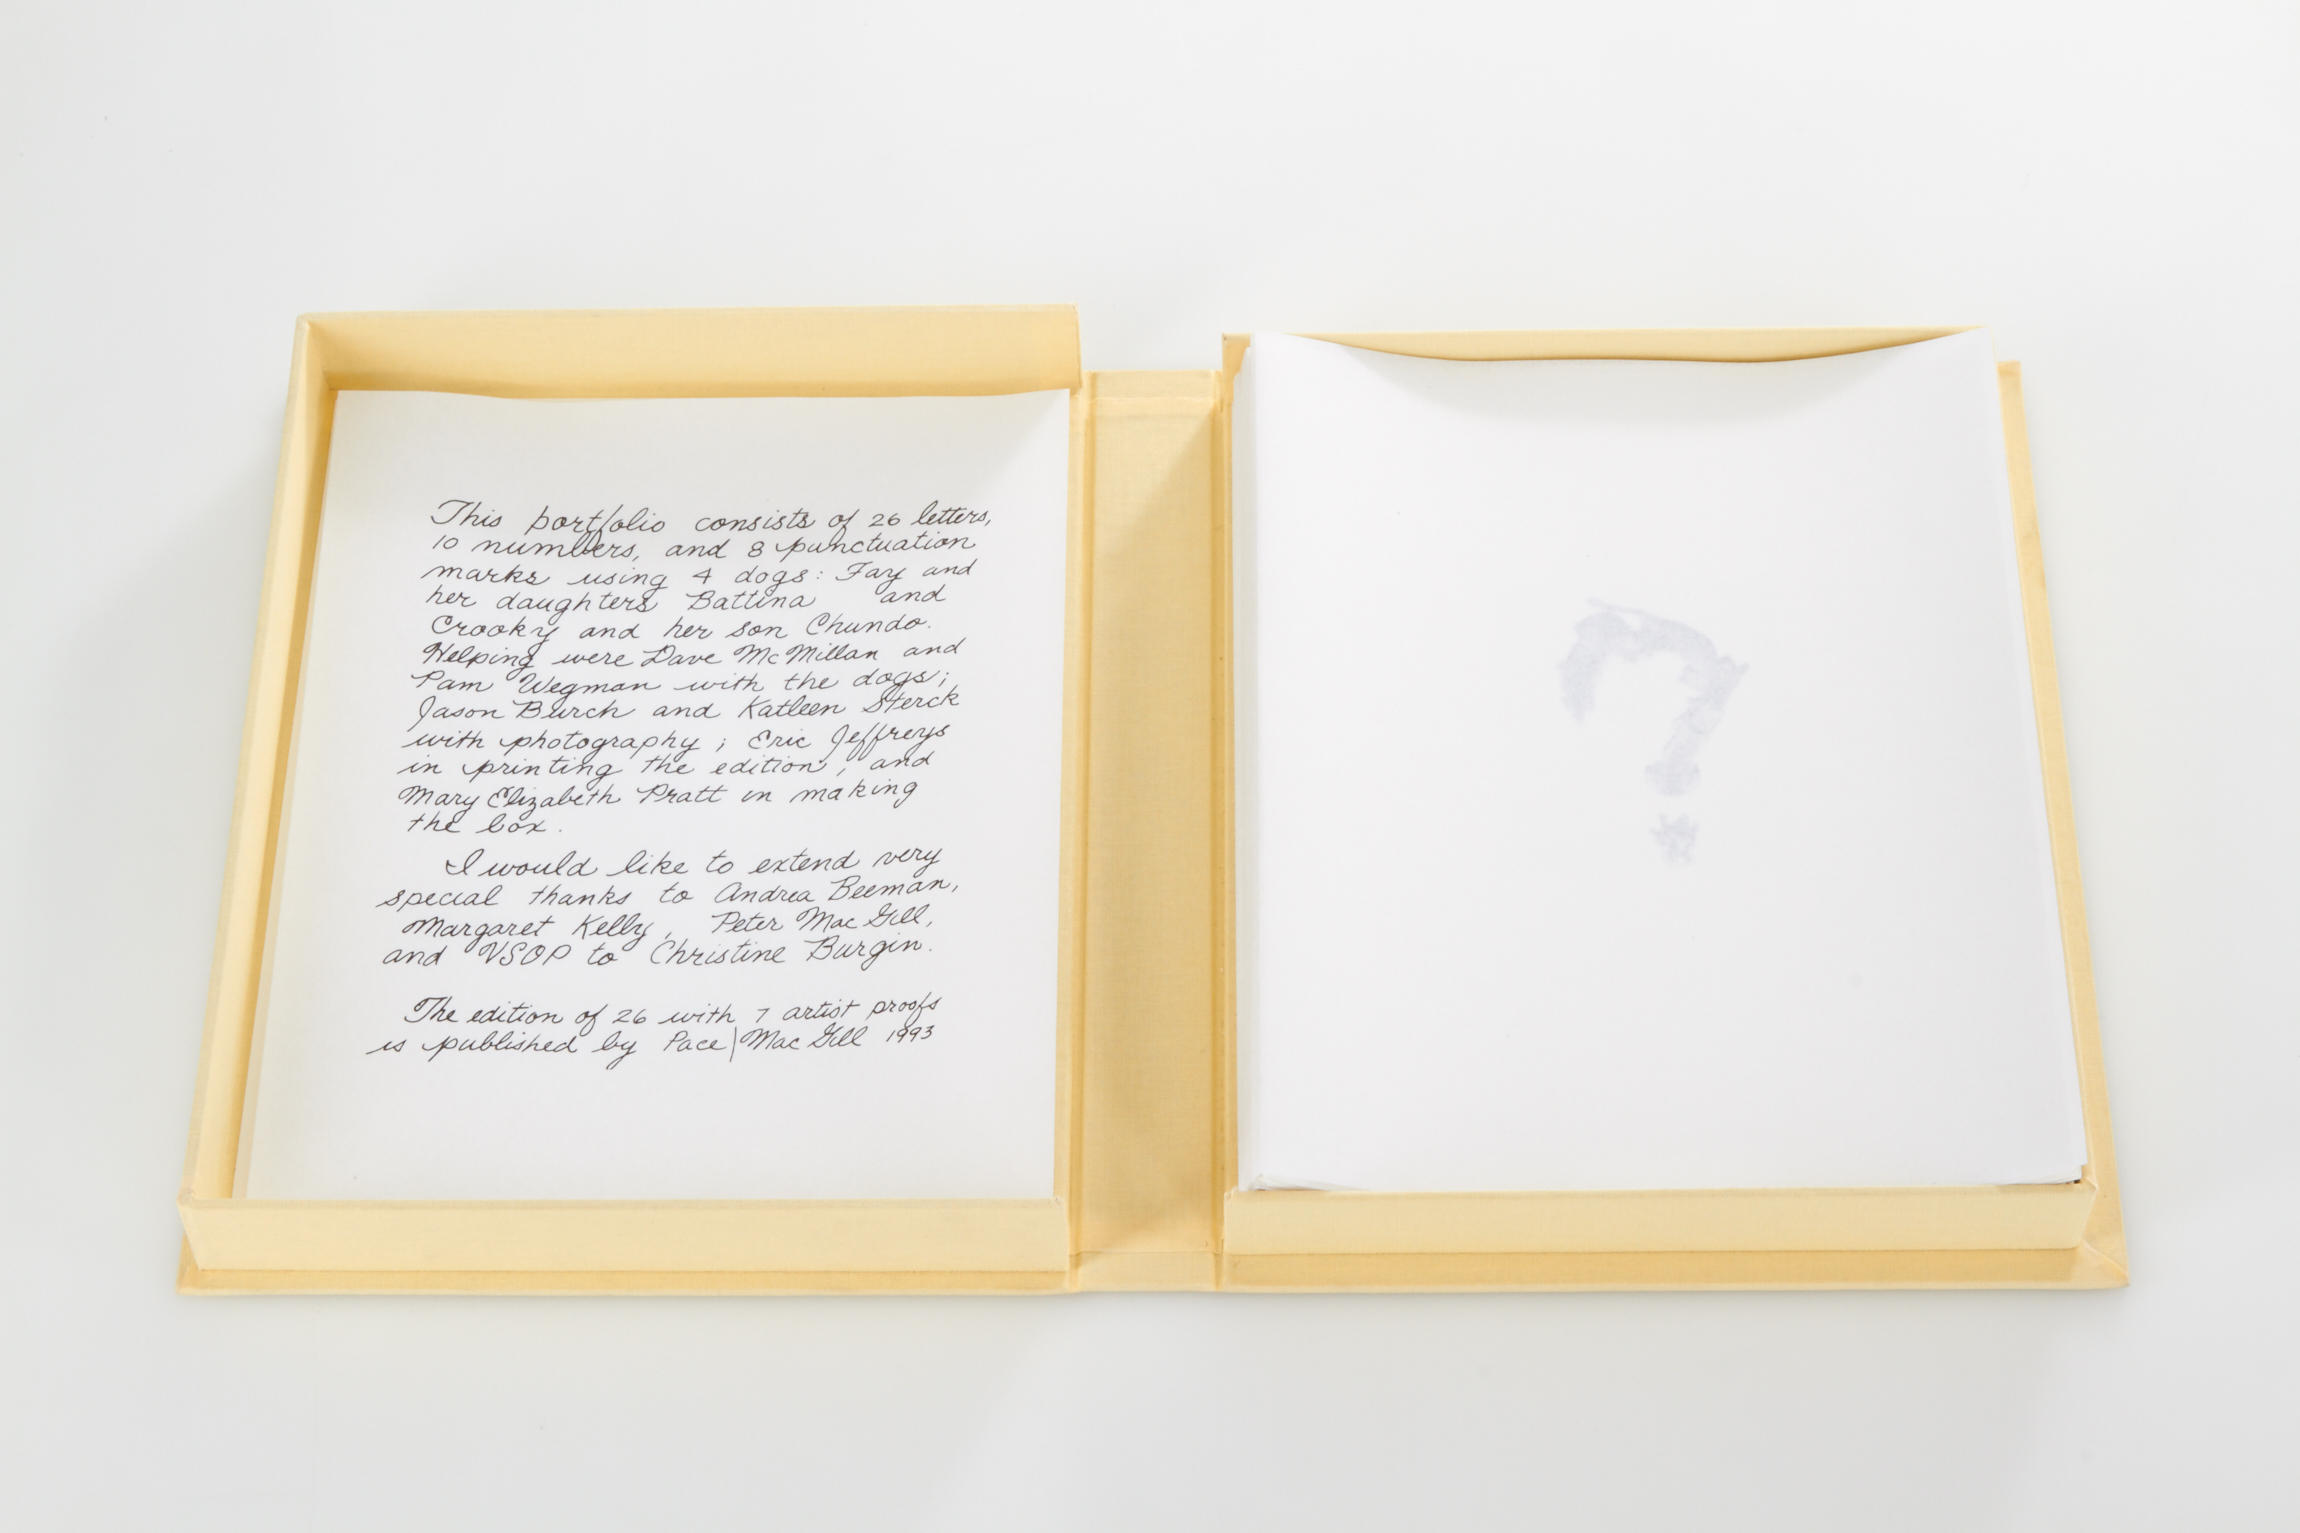 This portfolio consists of 26 letters,
10 numbers, and 8 punctuation
marks using 4 dogs: Fay and
her daughters Battina and
Crooky and her son Chundo.
Helping were Dave McMillan and
Pam Wegman with the dogs;
Jason Burch and Katleen Sterck
with photography; Eric Jeffreys
in printing the edition; and
Mary Elizabeth Pratt in making
the box.
I would like to extend very
special thanks to Andrea Beeman,
Margaret Kelly, Peter Mac Gill,
and VSOP to Christine Burgin.
The edition of 26 with 7 artist proofs
is published by Pace|Mac Gill 1993
?